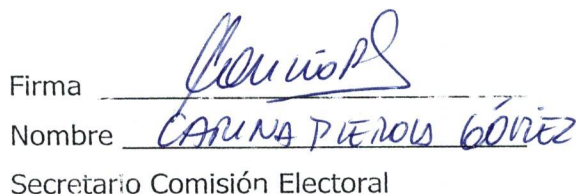 Firma
Nombre CARINA PIEROLA GÓMEZ
Secretario Comisión Electoral